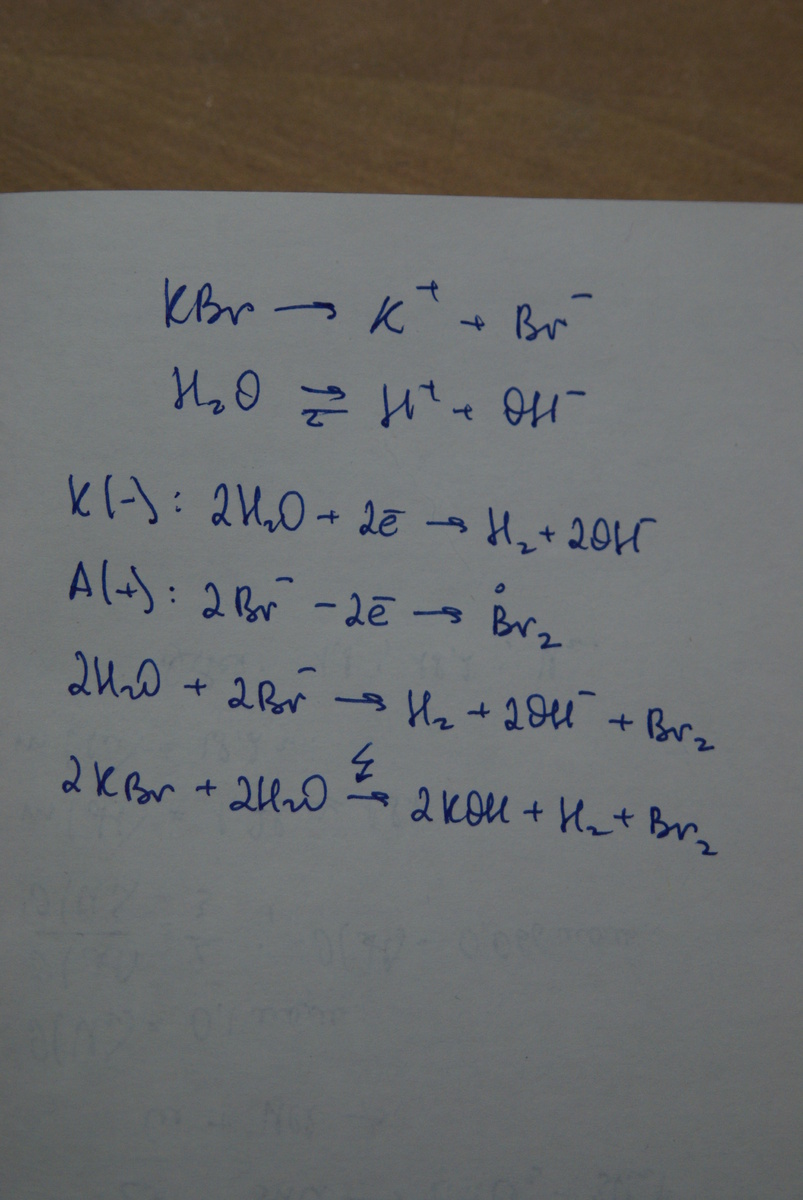 KBr → K⁺ + Br⁻
H₂O ⇄ H⁺ + OH⁻
K(-): 2H₂O + 2ē → H₂ + 2OH⁻
A(+): 2Br⁻ - 2ē → Br₂
2H₂O + 2Br⁻ → H₂ + 2OH⁻ + Br₂
2KBr + 2H₂O → 2KOH + H₂ + Br₂